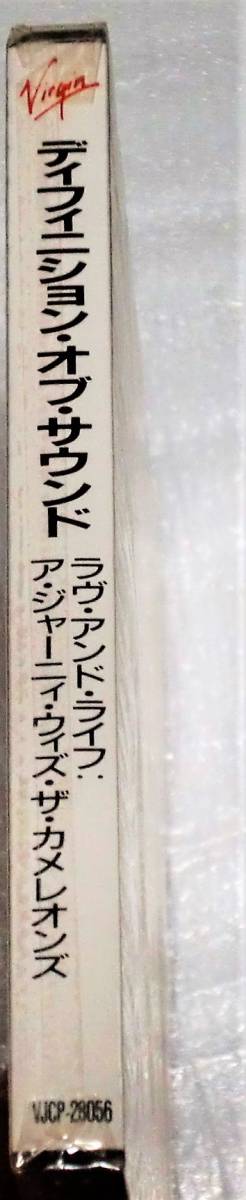 Virgin
ディフィニション・オブ・サウンド
ラヴ・アンド・ライフ:
ア・ジャーニィ・ウィズ・ザ・カメレオンズ
VJCP-28056